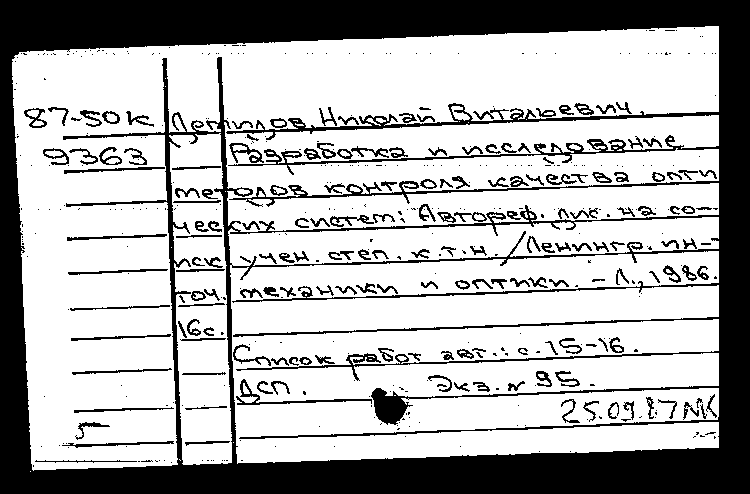 87-50к Демидов, Николай Витальевич.
9363 Разработка и исследование
методов контроля качества опти
ческих систем: Автореф. дис. на со-
иск учен. степ. к.т.н. / Ленингр. ин-т
точ. механики и оптики. - Л., 1986.
16с.
Список работ авт.: с. 15-16.
ДСП. Экз. N 95.
25.09.87
5